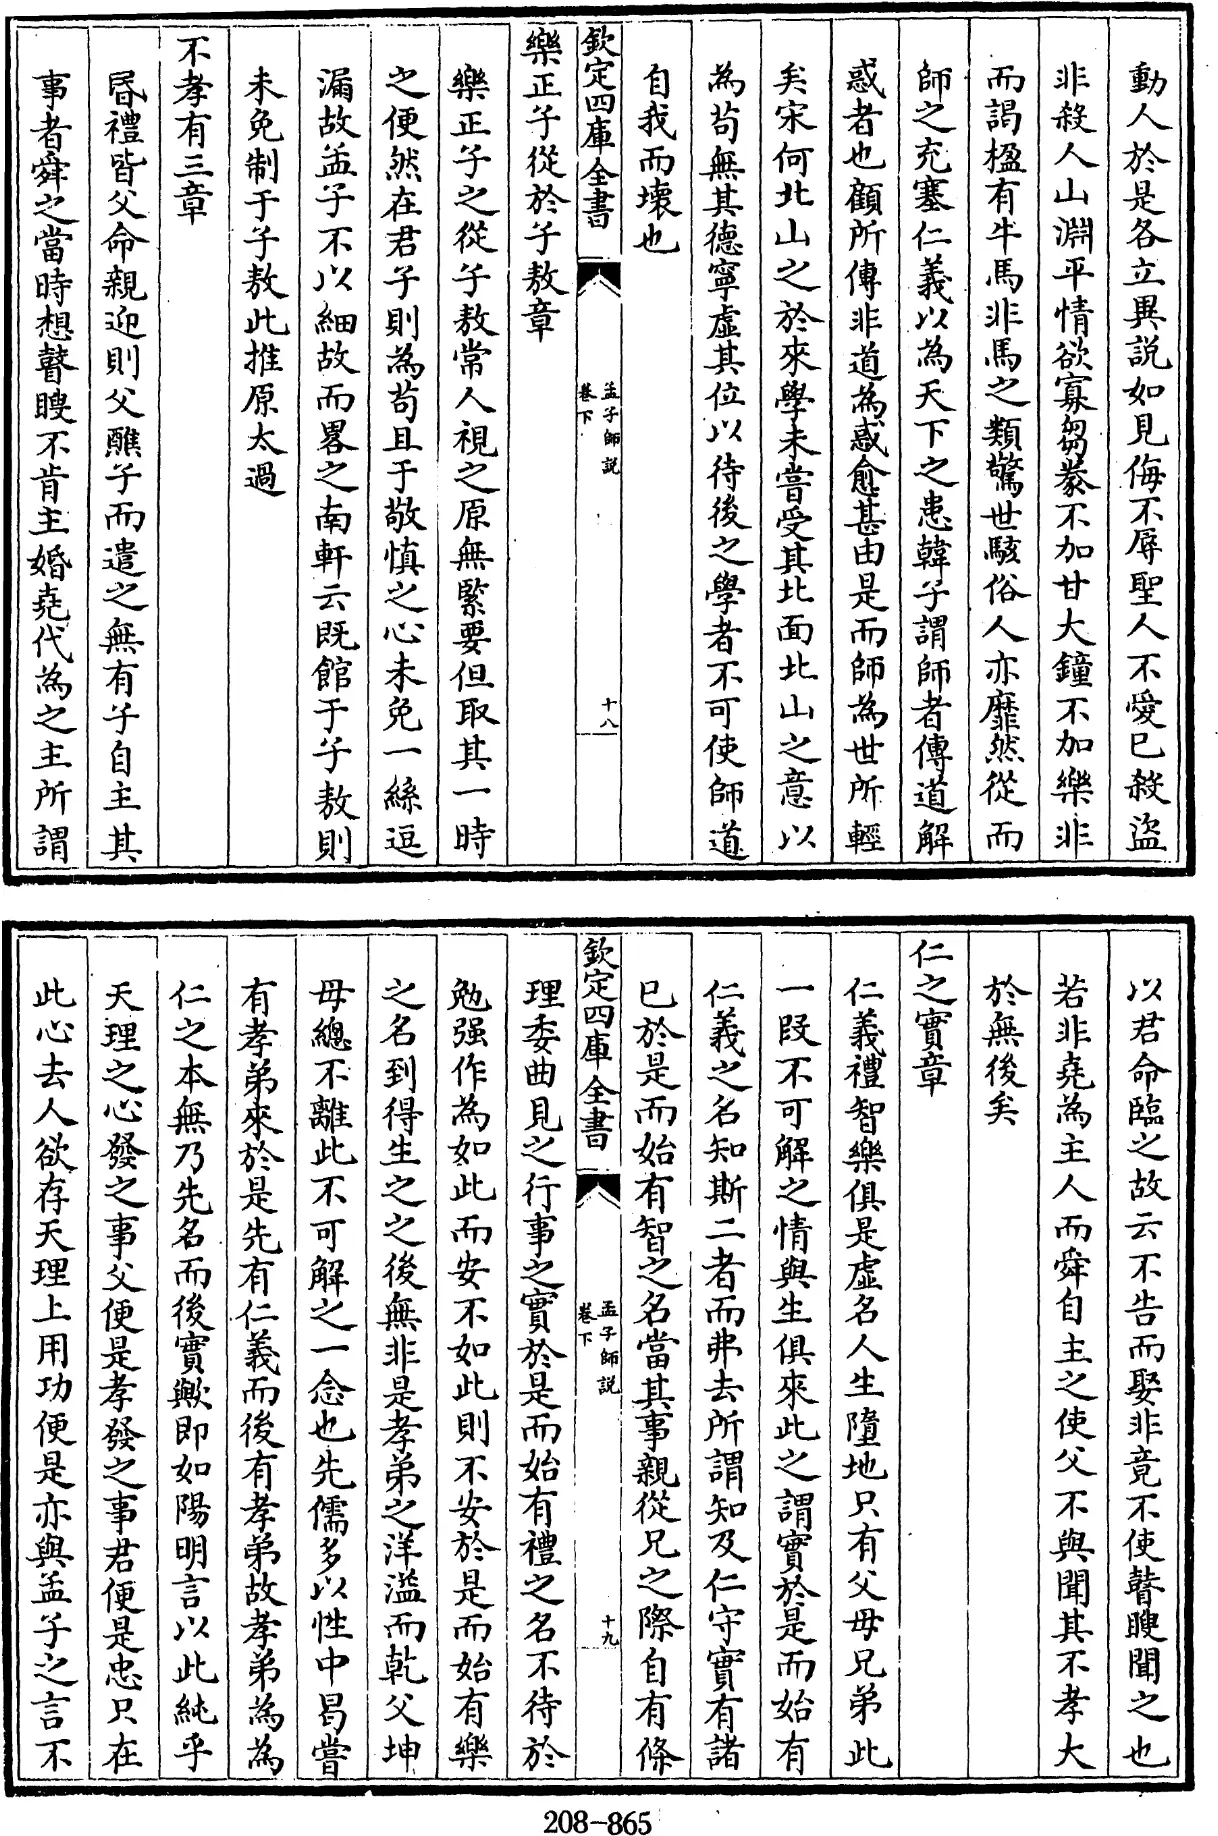 動人於是各立異說如見侮不辱聖人不愛已殺盜
非殺人山淵平情欲寡芻豢不加甘大鐘不加樂非
而謁楹有牛馬非馬之類驚世駭俗人亦靡然從而
師之充塞仁義以為天下之患韓子謂師者傳道解
惑者也顧所傳非道為惑愈甚由是而師為世所輕
矣宋何北山之於來學未嘗受其北面北山之意以
為苟無其德寧虛其位以待後之學者不可使師道
自我而壞也
欽定四庫全書
孟子師說
卷下
十八
樂正子從於子敖章
樂正子之從子敖常人視之原無緊要但取其一時
之便然在君子則為苟且于敬慎之心未免一絲逗
漏故孟子不以細故而畧之南軒云既館于子敖則
未免制于子敖此推原太過
不孝有三章
昏禮皆父命親迎則父醮子而遣之無有子自主其
事者舜之當時想瞽瞍不肯主婚堯代為之主所謂
以君命臨之故云不告而娶非竟不使瞽瞍聞之也
若非堯為主人而舜自主之使父不與聞其不孝大
於無後矣
仁之實章
仁義禮智樂俱是虛名人生墮地只有父母兄弟此
一段不可解之情與生俱來此之謂實於是而始有
仁義之名知斯二者而弗去所謂知及仁守實有諸
已於是而始有智之名當其事親從兄之際自有條
欽定四庫全書
孟子師說
卷下
十九
理委曲見之行事之實於是而始有禮之名不待於
勉强作為如此而安不如此則不安於是而始有樂
之名到得生之之後無非是孝弟之洋溢而乾父坤
母總不離此不可解之一念也先儒多以性中曷嘗
有孝弟來於是先有仁義而後有孝弟故孝弟為為
仁之本無乃先名而後實歟即如陽明言以此純乎
天理之心發之事父便是孝發之事君便是忠只在
此心去人欲存天理上用功便是亦與孟子之言不
208-865